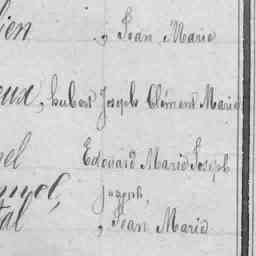 ien , Jean Marie
eux, hubert Joseph Clément Marie
el Edouard Marie Joseph
Joseph,
tal , Jean Marie